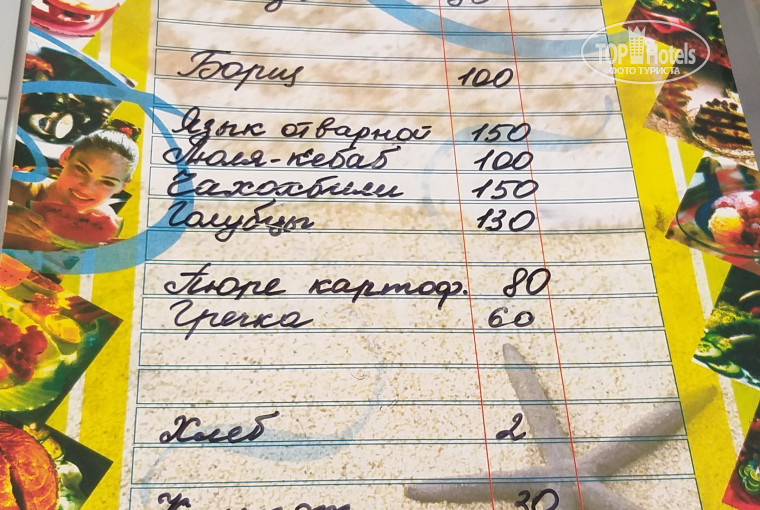 TOP Hotels
ФОТО ТУРИСТА
Борщ 100
Язык отварной 150
Люля-кебаб 100
Чахохбили 150
Голубцы 130
Пюре картоф. 80
Гречка 60
Хлеб 2
30